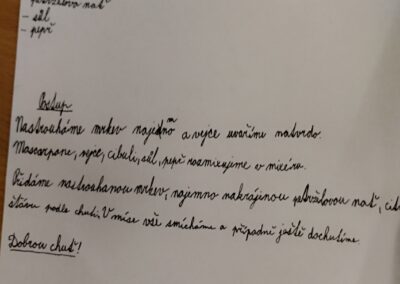 petrželová nať
- sůl
- pepř
Postup
Nastrouháme mrkev najemno a vejce uvaříme natvrdo.
Mascarpone, vejce, cibuli, sůl, pepř rozmixujeme v mixéru.
Přidáme nastrouhanou mrkev, najemno nakrájenou petrželovou nať, cit
šťávu podle chuti. V míse vše smícháme a případně ještě dochutíme.
Dobrou chuť!